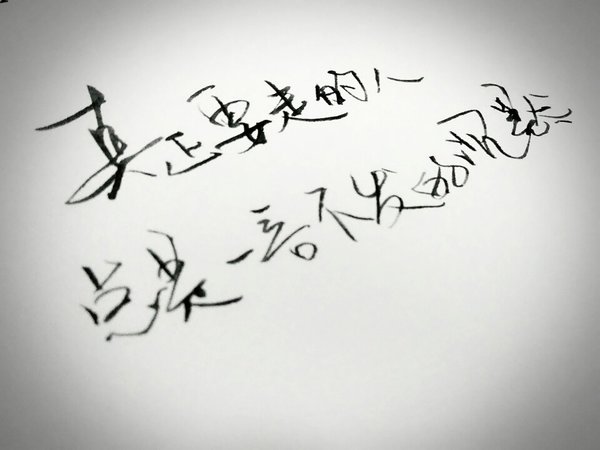 真正要走的人
总是一言不发的沉默